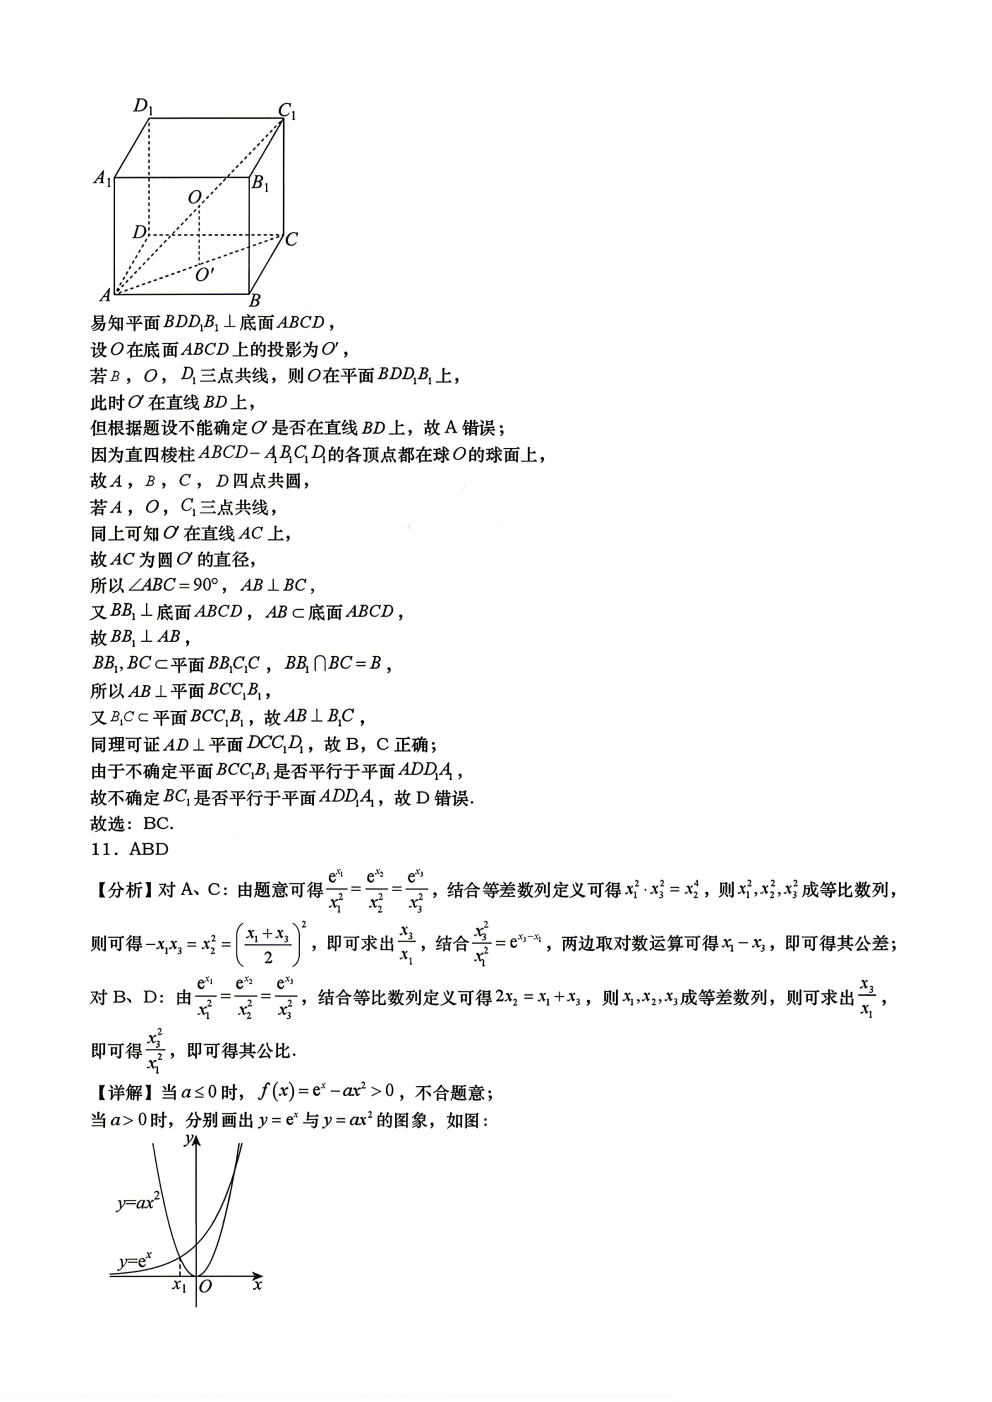 D₁ C₁
A₁ B₁
O
D C
O′
A B
易知平面BDD₁B₁⊥底面ABCD，
设O在底面ABCD上的投影为O′，
若B，O，D₁三点共线，则O在平面BDD₁B₁上，
此时O′在直线BD上，
但根据题设不能确定O′是否在直线BD上，故A错误；
因为直四棱柱ABCD−A₁B₁C₁D₁的各顶点都在球O的球面上，
故A，B，C，D四点共圆，
若A，O，C₁三点共线，
同上可知O′在直线AC上，
故AC为圆O′的直径，
所以∠ABC=90°，AB⊥BC，
又BB₁⊥底面ABCD，AB⊂底面ABCD，
故BB₁⊥AB，
BB₁,BC⊂平面BB₁C₁C，BB₁∩BC=B，
所以AB⊥平面BCC₁B₁，
又B₁C⊂平面BCC₁B₁，故AB⊥B₁C，
同理可证AD⊥平面DCC₁D₁，故B，C正确；
由于不确定平面BCC₁B₁是否平行于平面ADD₁A₁，
故不确定BC₁是否平行于平面ADD₁A₁，故D错误.
故选：BC.
11．ABD
【分析】对A、C：由题意可得e^{x₁}/x₁²=e^{x₂}/x₂²=e^{x₃}/x₃²，结合等差数列定义可得x₁²·x₃²=x₂⁴，则x₁²,x₂²,x₃²成等比数列，
则可得−x₁x₃=x₂²=((x₁+x₃)/2)²，即可求出x₃/x₁，结合x₃²/x₁²=e^{x₃−x₁}，两边取对数运算可得x₁−x₃，即可得其公差；
对B、D：由e^{x₁}/x₁²=e^{x₂}/x₂²=e^{x₃}/x₃²，结合等比数列定义可得2x₂=x₁+x₃，则x₁,x₂,x₃成等差数列，则可求出x₃/x₁，
即可得x₃²/x₁²，即可得其公比.
【详解】当a≤0时，f(x)=eˣ−ax²>0，不合题意；
当a>0时，分别画出y=eˣ与y=ax²的图象，如图：
y
y=ax²
y=eˣ
x₁ O x